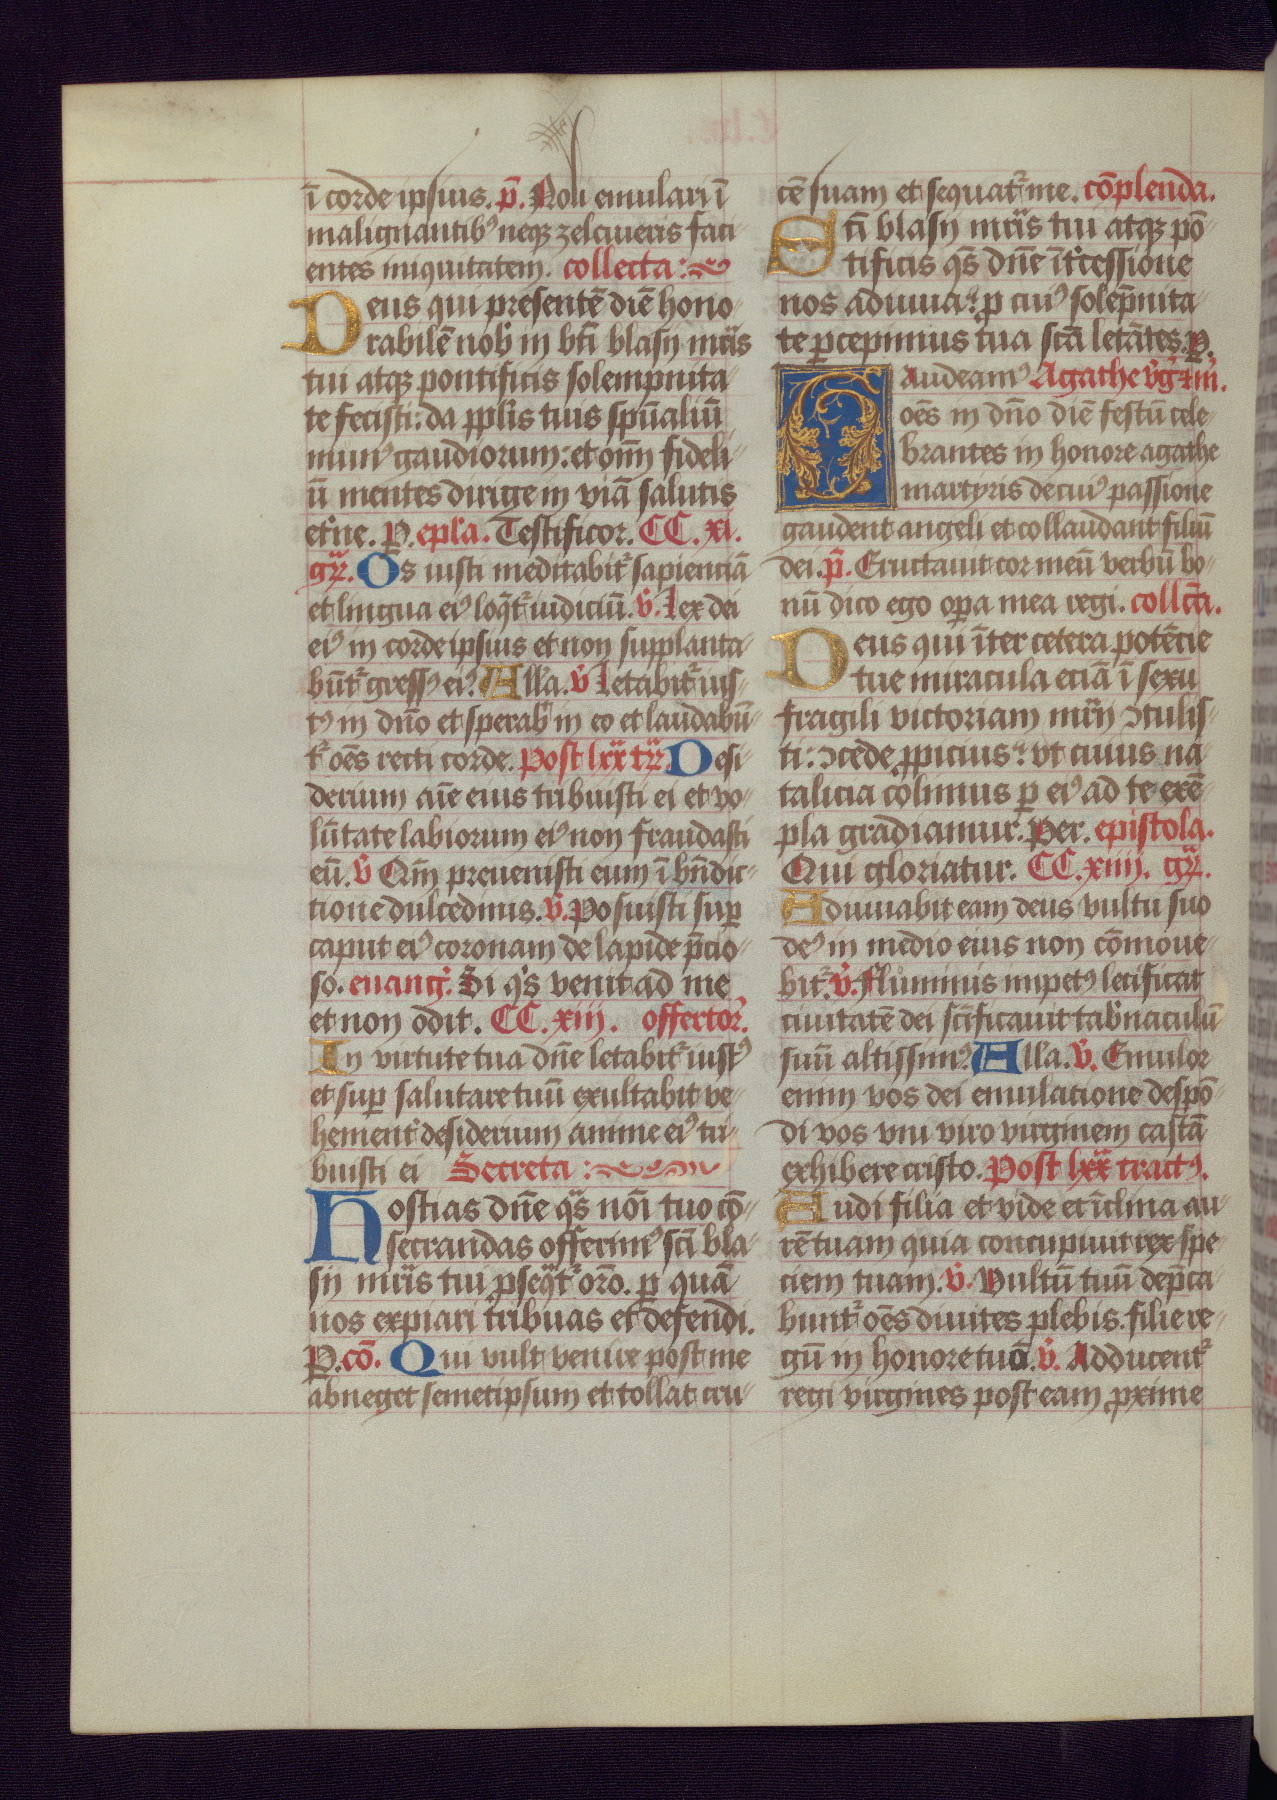 ī corde ipsius. p̄. Noli emulari ī
malignantibꝰ neqꝫ zelaueris faci
entes iniquitatem. collecta:
Deus qui presentē diē hono
rabilē nob̄ in bt̄i blasij mr̄is
tui atqꝫ pontificis solempnita
te fecisti: da pplis tuis spūaliū
munꝰ gaudiorum: et om̄i fideli
ū mentes dirige in viā salutis
et̄ne. P. epla. Testificor. CC. xi.
gꝛ̄. Os iusti meditabitᷣ sapienciā
et lingua eiꝰ loq̄tᷣ iudiciū. v̄. Lex dei
eiꝰ in corde ipsius et non supplanta
būtᷣ gressꝰ eiꝰ. All'a. v̄ Letabitᷣ ius
tꝰ in dn̄o et sperab̄ in eo et laudabū
tᷣ oēs recti corde. Post lxx tꝛ̄ Desi
derium aīe eius tribuisti ei et vo
lūtate labiorum eiꝰ non fraudasti
eū. v̄ Qm̄ preuenisti eum ī bn̄dic
tione dulcedinis. v̄. Posuisti suꝑ
caput eiꝰ coronam de lapide p̄cio
so. euang̓. Si q̓s venit ad me
et non odit. CC. xiij. offertor̓.
In virtute tua dn̄e letabitᷣ iustꝰ
et suꝑ salutare tuū exultabit ve
hement̓ desiderium anime eiꝰ tri
buisti ei Secreta:
Hostias dn̄e q̄s noī tuo cō
secrandas offerimꝰ sc̄i bla
sij mr̄is tui ꝓseq̄tᷣ or̄o. ꝑ quā
nos expiari tribuas et defendi.
P. cō. Qui vult venire post me
abneget semetipsum et tollat cru
cē suam et sequatᷣ me. cōplenda.
Sc̄i blasij mr̄is tui atqꝫ pō
tificis q̄s dn̄e īt̓cessione
nos adiuua: ꝑ cuiꝰ solēpnita
te ꝑcepimus tua sc̄a letātes. P.
Gaudeamꝰ Agathe v̓g̓ ⁊ m̄.
oēs in dn̄o diē festū cele
brantes in honore agathe
martyris de cuiꝰ passione
gaudent angeli et collaudant filiū
dei. p̄. Eructauit cor meū verbū bo
nū dico ego oꝑa mea regi. collc̄a.
Deus qui īter cetera potēcie
tue miracula eciā ī sexu
fragili victoriam mr̄ij ꝯtulis
ti: ꝯcede ꝓpicius: vt cuius na
talicia colimus ꝑ eiꝰ ad te exē
pla gradiamur. Per. epistola.
Qui gloriatur. CC. xiiij. gꝛ̄.
Adiuuabit eam deus vultu suo
deꝰ in medio eius non cōmoue
bitᷣ. v̄. Fluminis impetꝰ letificat
ciuitatē dei sc̄ificauit tab̓naculū
suū altissimꝰ. All'a. v̄. Emulor
enim vos dei emulacione despō
di vos vni viro virginem castā
exhibere cristo. Post lxx tractꝰ.
Audi filia et vide et īclina au
rē tuam quia concupiuit rex spe
ciem tuam. v̄. Vultū tuū dep̄ca
buntᷣ oēs diuites plebis. filie re
gū in honore tuo. v̄. Adducentᷣ
regi virgines post eam ꝓxime